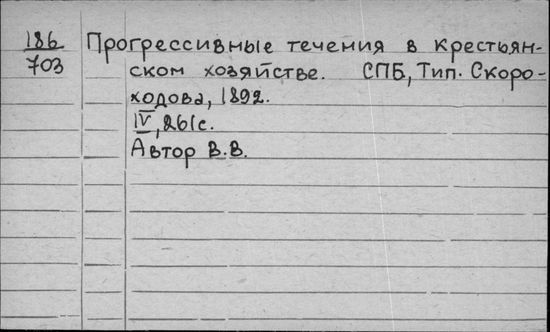 186 Прогрессивные течения в крестьян-
703 ском хозяйстве. СПБ, Тип. Скоро-
ходова, 1892.
IV, 261с.
Автор В.В.